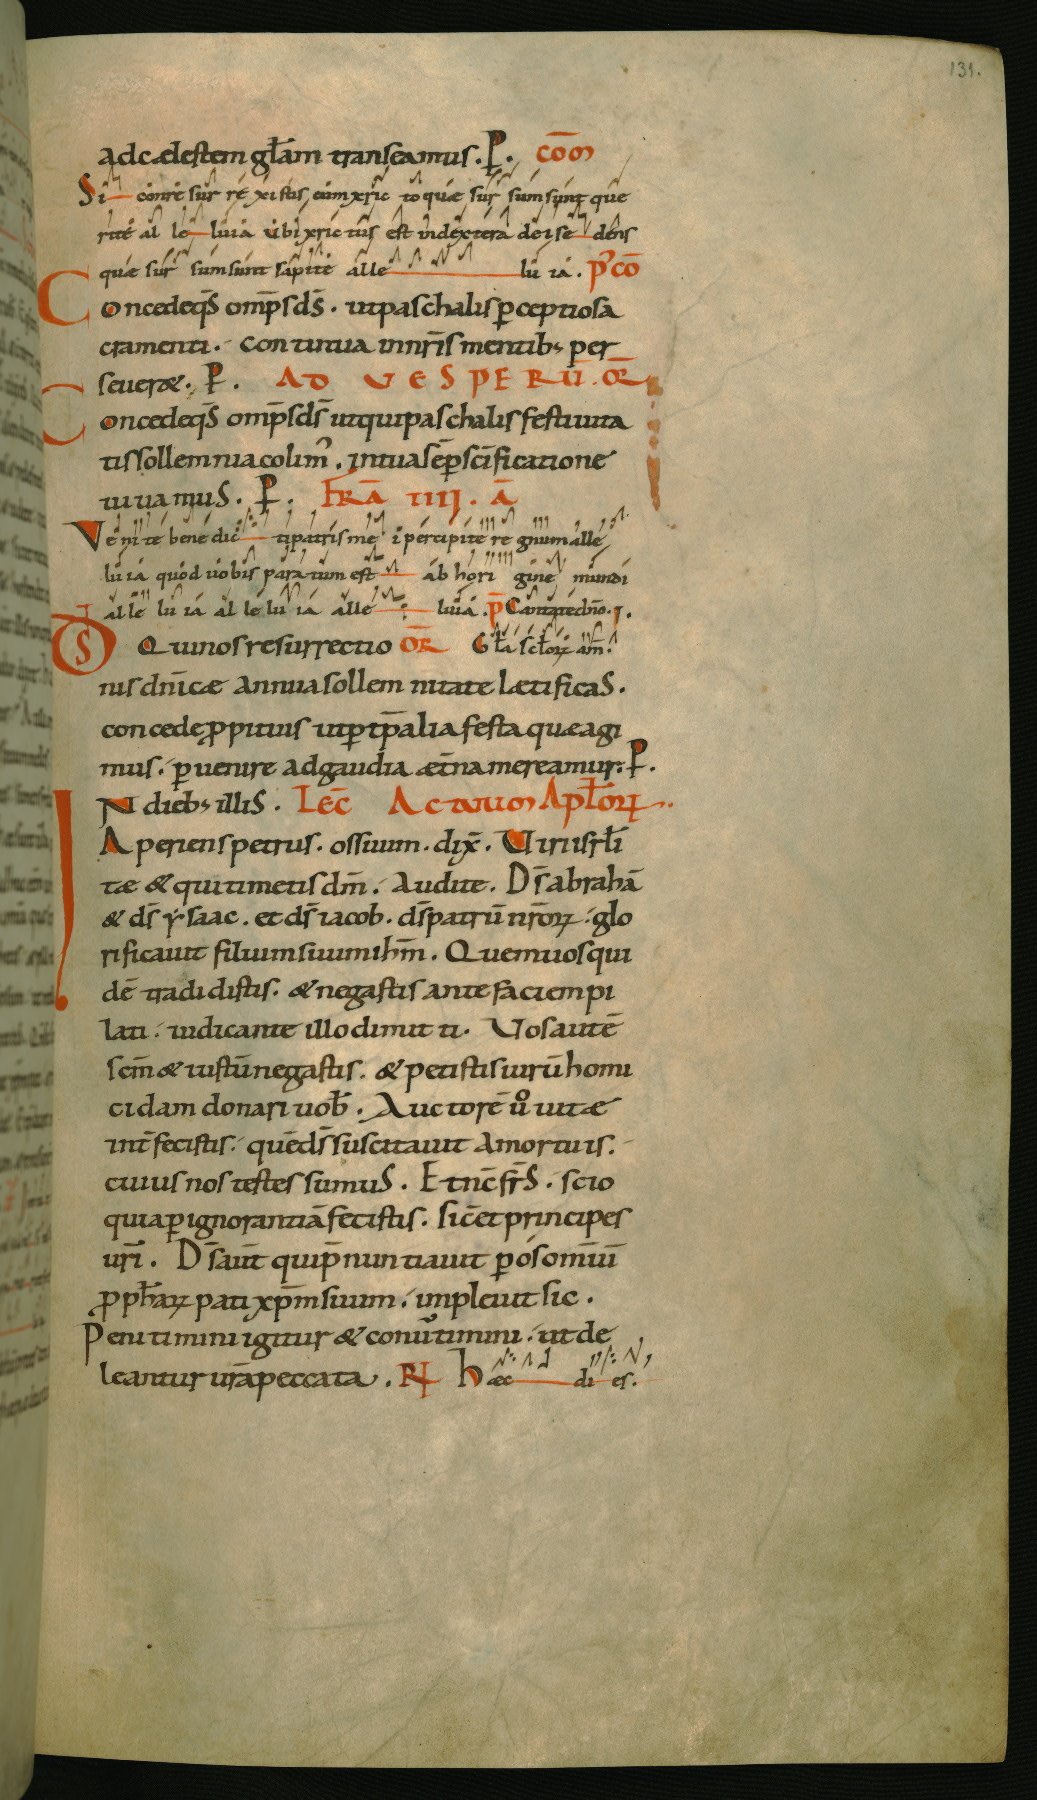 131.
adcælestem gl̄am transeamus. P. cōm
Si conre sur re xistis cum xric to quæ sur sum sunt que
rite al le luia ubi xric tus est indextera dei se dens
quæ sur sum sunt sapite alle lu ia. p̄ cō
Concedeqs̄ omp̄s ds̄. ut paschalis perceptio sa
cramenti. continua in nr̄is mentib; per
severæ. P. AD VESPERŪ. OR̄
Concedeqs̄ omp̄s ds̄ ut qui paschalis festivita
tis sollemnia colim̄. in tua sēp sc̄ificatione
vivamus. P. FR̄A IIII. Ā
Ve ni te bene dic ti patris me i percipite re gnum alle
lu ia quod vobis para tum est ab hori gine mundi
alle lu ia al le lu ia alle luia. p̄ Cantate dn̄o. j.
DS Qui nos resurrectio OR̄ Gl̄a sc̄lorꝝ am̄.
nis dn̄icæ annua sollemnitate lætificas.
concede propitius ut per tp̄alia festa quæ agi
mus. pervenire ad gaudia æt̄na mereamur. P.
IN dieb; illis. Lec̄ Actuum Apl̄orꝝ.
Aperiens petrus. os suum. dix̄. Viri isrl̄i
tæ & qui timetis dm̄. Audite. Ds̄ abrahā
& ds̄ ysaac. et ds̄ iacob. ds̄ patrū nr̄orꝝ. glo
rificavit filium suum ihm̄. Quem vos qui
dē tradidistis. & negastis ante faciem pi
lati. iudicante illo dimitti. Vos autē
scm̄ & iustū negastis. & petistis virū homi
cidam donari vob̄. Auctorē ů vitæ
int̄fecistis. quē ds̄ suscitavit a mortuis.
cuius nos testes sumus. Et nc̄ fr̄s. scio
quia per ignorantiā fecistis. sic̄ et principes
vr̄i. Ds̄ aut̄ qui p̄nuntiavit per os om̄iū
prophetarꝝ pati xp̄m suum. implevit sic.
Penitimini igitur & conv̄timini. ut de
leantur vr̄a peccata. R̄ Hæc di es.